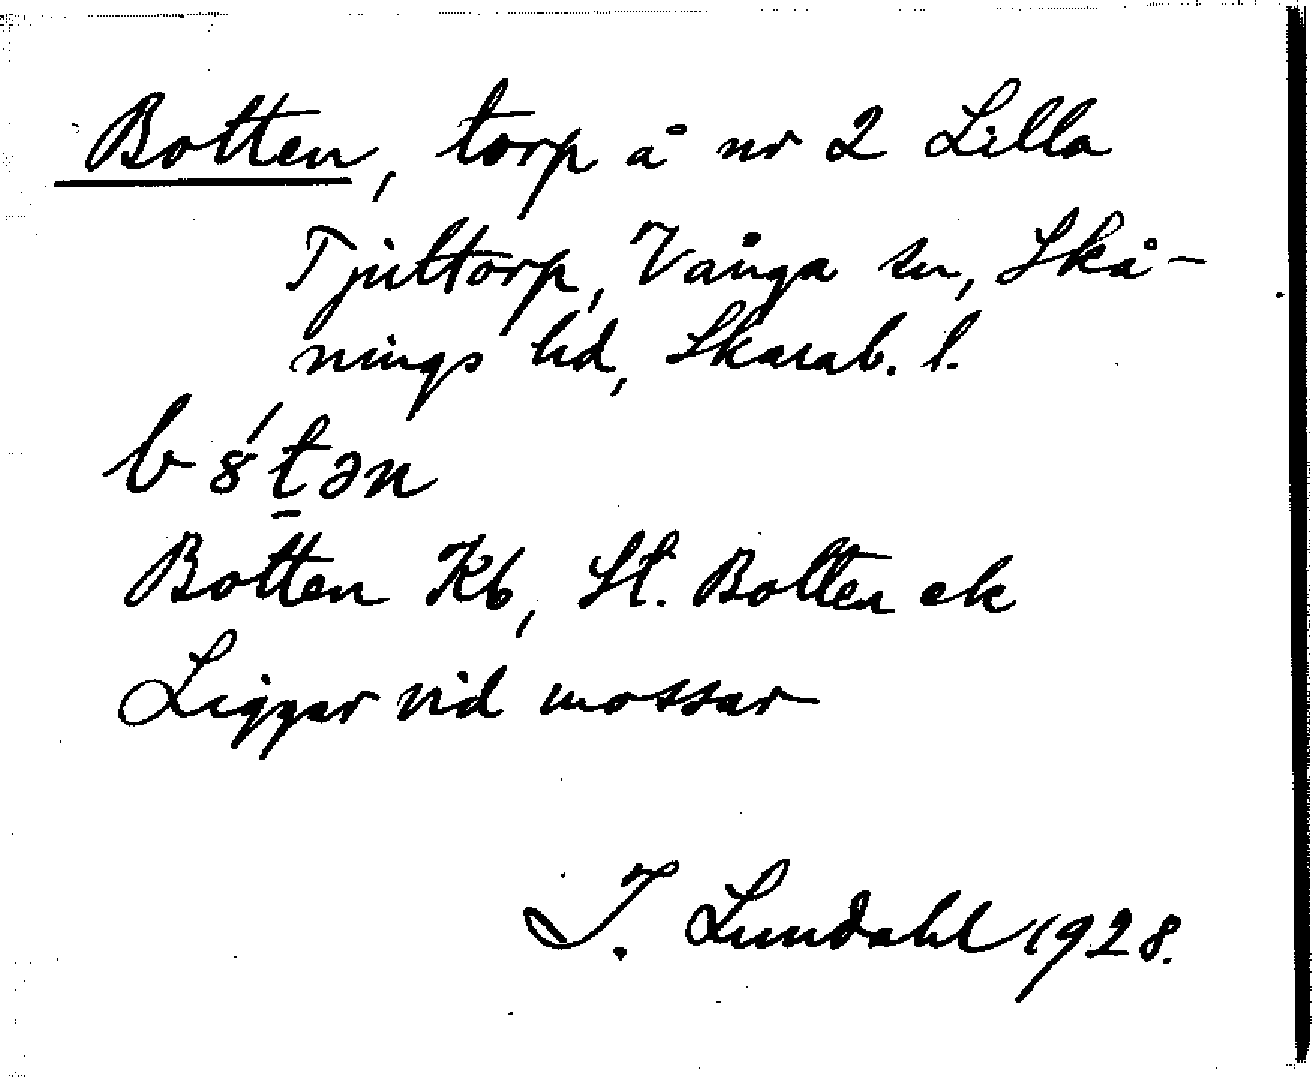 Botten, torp å nr 2 Lilla
Tjultorp, Vånga sn, Skå-
nings hd, Skarab. l.
b8́t̠ən
Botten Kb, St. Botten ek
Ligger vid mossar
I. Lundahl 1928.